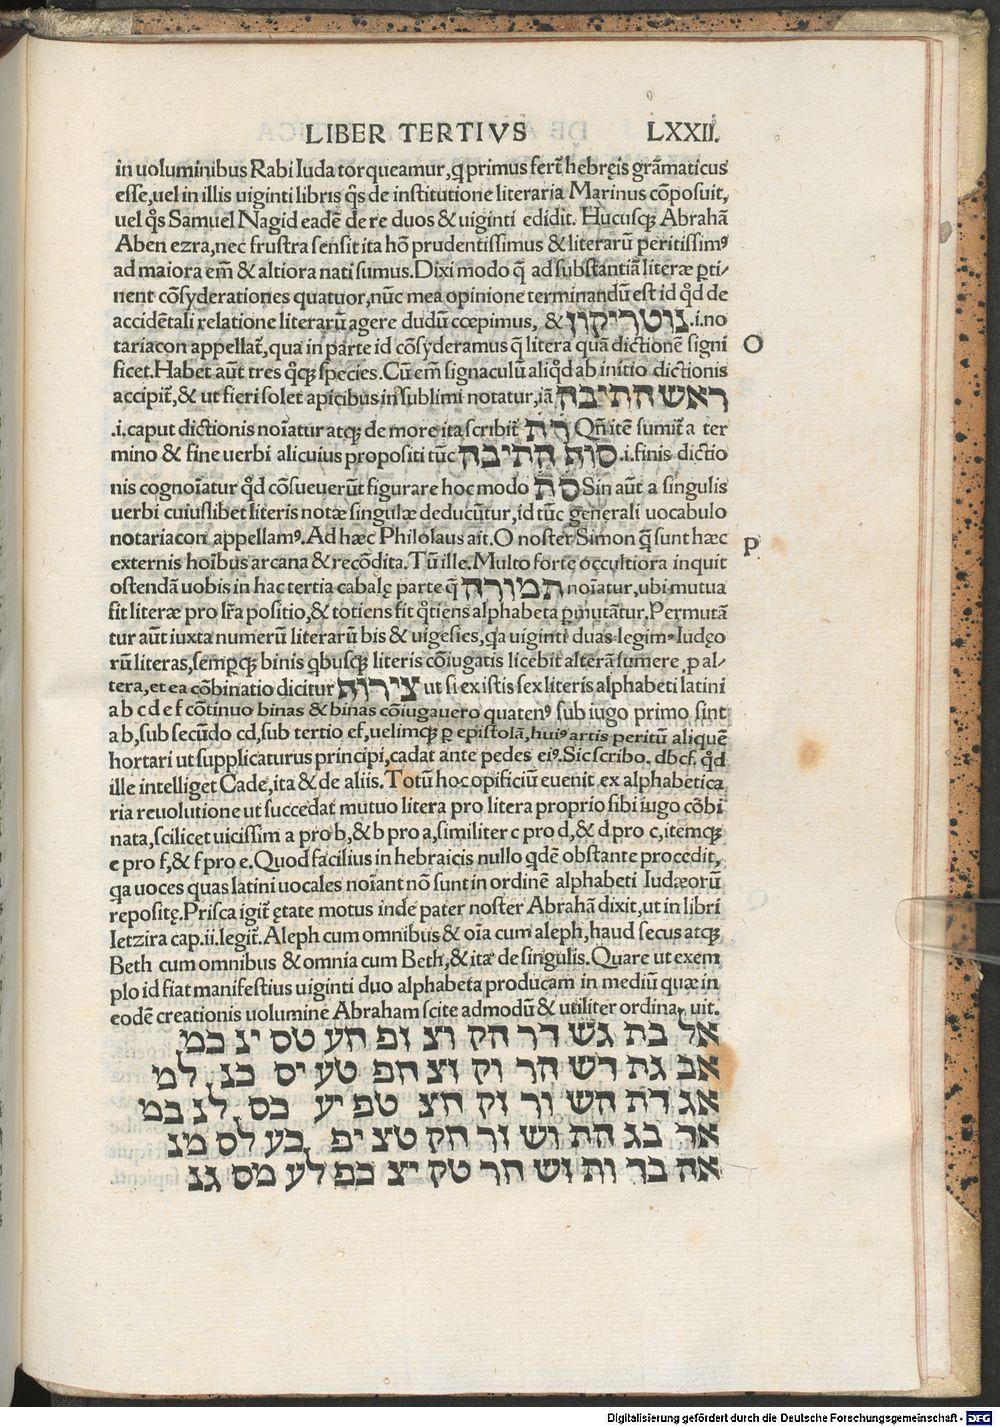 LIBER TERTIVS LXXII.
in uoluminibus Rabi Iuda torqueamur, ꝙ primus fert̃ hebręis grãmaticus
esse, uel in illis uiginti libris q̃s de institutione literaria Marinus cõposuit,
uel q̃s Samuel Nagid eadẽ de re duos & uiginti edidit. Hucusqꝫ Abrahã
Aben ezra, nec frustra sensit ita hõ prudentissimus & literarũ peritissimꝰ
ad maiora em̃ & altiora nati sumus. Dixi modo q̃ ad substantiã literæ ꝑti/
nent cõsyderationes quatuor, nũc mea opinione terminandũ est id qd̃ de
accidẽtali relatione literarũ agere dudũ cœpimus, & נוטריקון .i. no
tariacon appellat̃, qua in parte id cõsyderamus q̃ litera quã dictionẽ signi O
ficet. Habet aũt tres q̊qꝫ species. Cũ em̃ signaculũ aliqd̃ ab initio dictionis
accipit̃, & ut fieri solet apicibus in sublimi notatur, iã ראש התיבה
.i. caput dictionis noĩatur atqꝫ de more ita scribit̃ רת Qñ itẽ sumit̃ a ter
mino & fine uerbi alicuius propositi tũc סות התיבה .i. finis dictio
nis cognoĩatur qd̃ cõsueuerũt figurare hoc modo סת Sin aũt a singulis
uerbi cuiuslibet literis notæ singulæ deducũtur, id tũc generali uocabulo
notariacon appellamꝰ. Ad hæc Philolaus ait. O noster Simon q̃ sunt hæc P
externis hoĩbus arcana & recõdita. Tũ ille. Multo forte occultiora inquit
ostendã uobis in hac tertia cabalę parte q̃ תמורה noĩatur, ubi mutua
fit literæ pro lr̃a positio, & totiens fit q̊tiens alphabeta ꝑmutãtur. Permutã
tur aũt iuxta numerũ literarũ bis & uigesies, qa uiginti duas legimꝰ Iudęo
rũ literas, semꝑqꝫ binis qbusqꝫ literis cõiugatis licebit alterã sumere ꝓ al/
tera, et ea cõbinatio dicitur צירות ut si ex istis sex literis alphabeti latini
a b c d e f cõtinuo binas & binas cõiugauero quatenꝰ sub iugo primo sint
ab, sub secũdo cd, sub tertio ef, uelimqꝫ ꝑ epistolã, huiꝰ artis peritũ aliquẽ
hortari ut supplicaturus principi, cadat ante pedes eiꝰ. Sic scribo. dbcf. qd̃
ille intelliget Cade, ita & de aliis. Totũ hoc opificiũ euenit ex alphabetica
ria reuolutione ut succedat mutuo litera pro litera proprio sibi iugo cõbi
nata, scilicet uicissim a pro b, & b pro a, similiter c pro d, & d pro c, itemqꝫ
e pro f, & f pro e. Quod facilius in hebraicis nullo qdẽ obstante procedit,
qa uoces quas latini uocales noĩant nõ sunt in ordinẽ alphabeti Iudæorũ
repositę. Prisca igit̃ ętate motus inde pater noster Abrahã dixit, ut in libri
Ietzira cap. ii. legit̃. Aleph cum omnibus & oĩa cum aleph, haud secus atqꝫ
Beth cum omnibus & omnia cum Beth, & ita de singulis. Quare ut exem
plo id fiat manifestius uiginti duo alphabeta producam in mediũ quæ in
eodẽ creationis uolumine Abraham scite admodũ & utiliter ordinauit.
אל בת גש דר הק וצ זפ חע טס ינ כמ
אב גת דש הר וק זצ חפ טע יס כנ למ
אג דת הש ור זק חצ טפ יע כס לנ במ
אד בג הת וש זר חק טצ יפ כע לס מנ
אה בד ות זש חר טק יצ כפ לע מס גנ